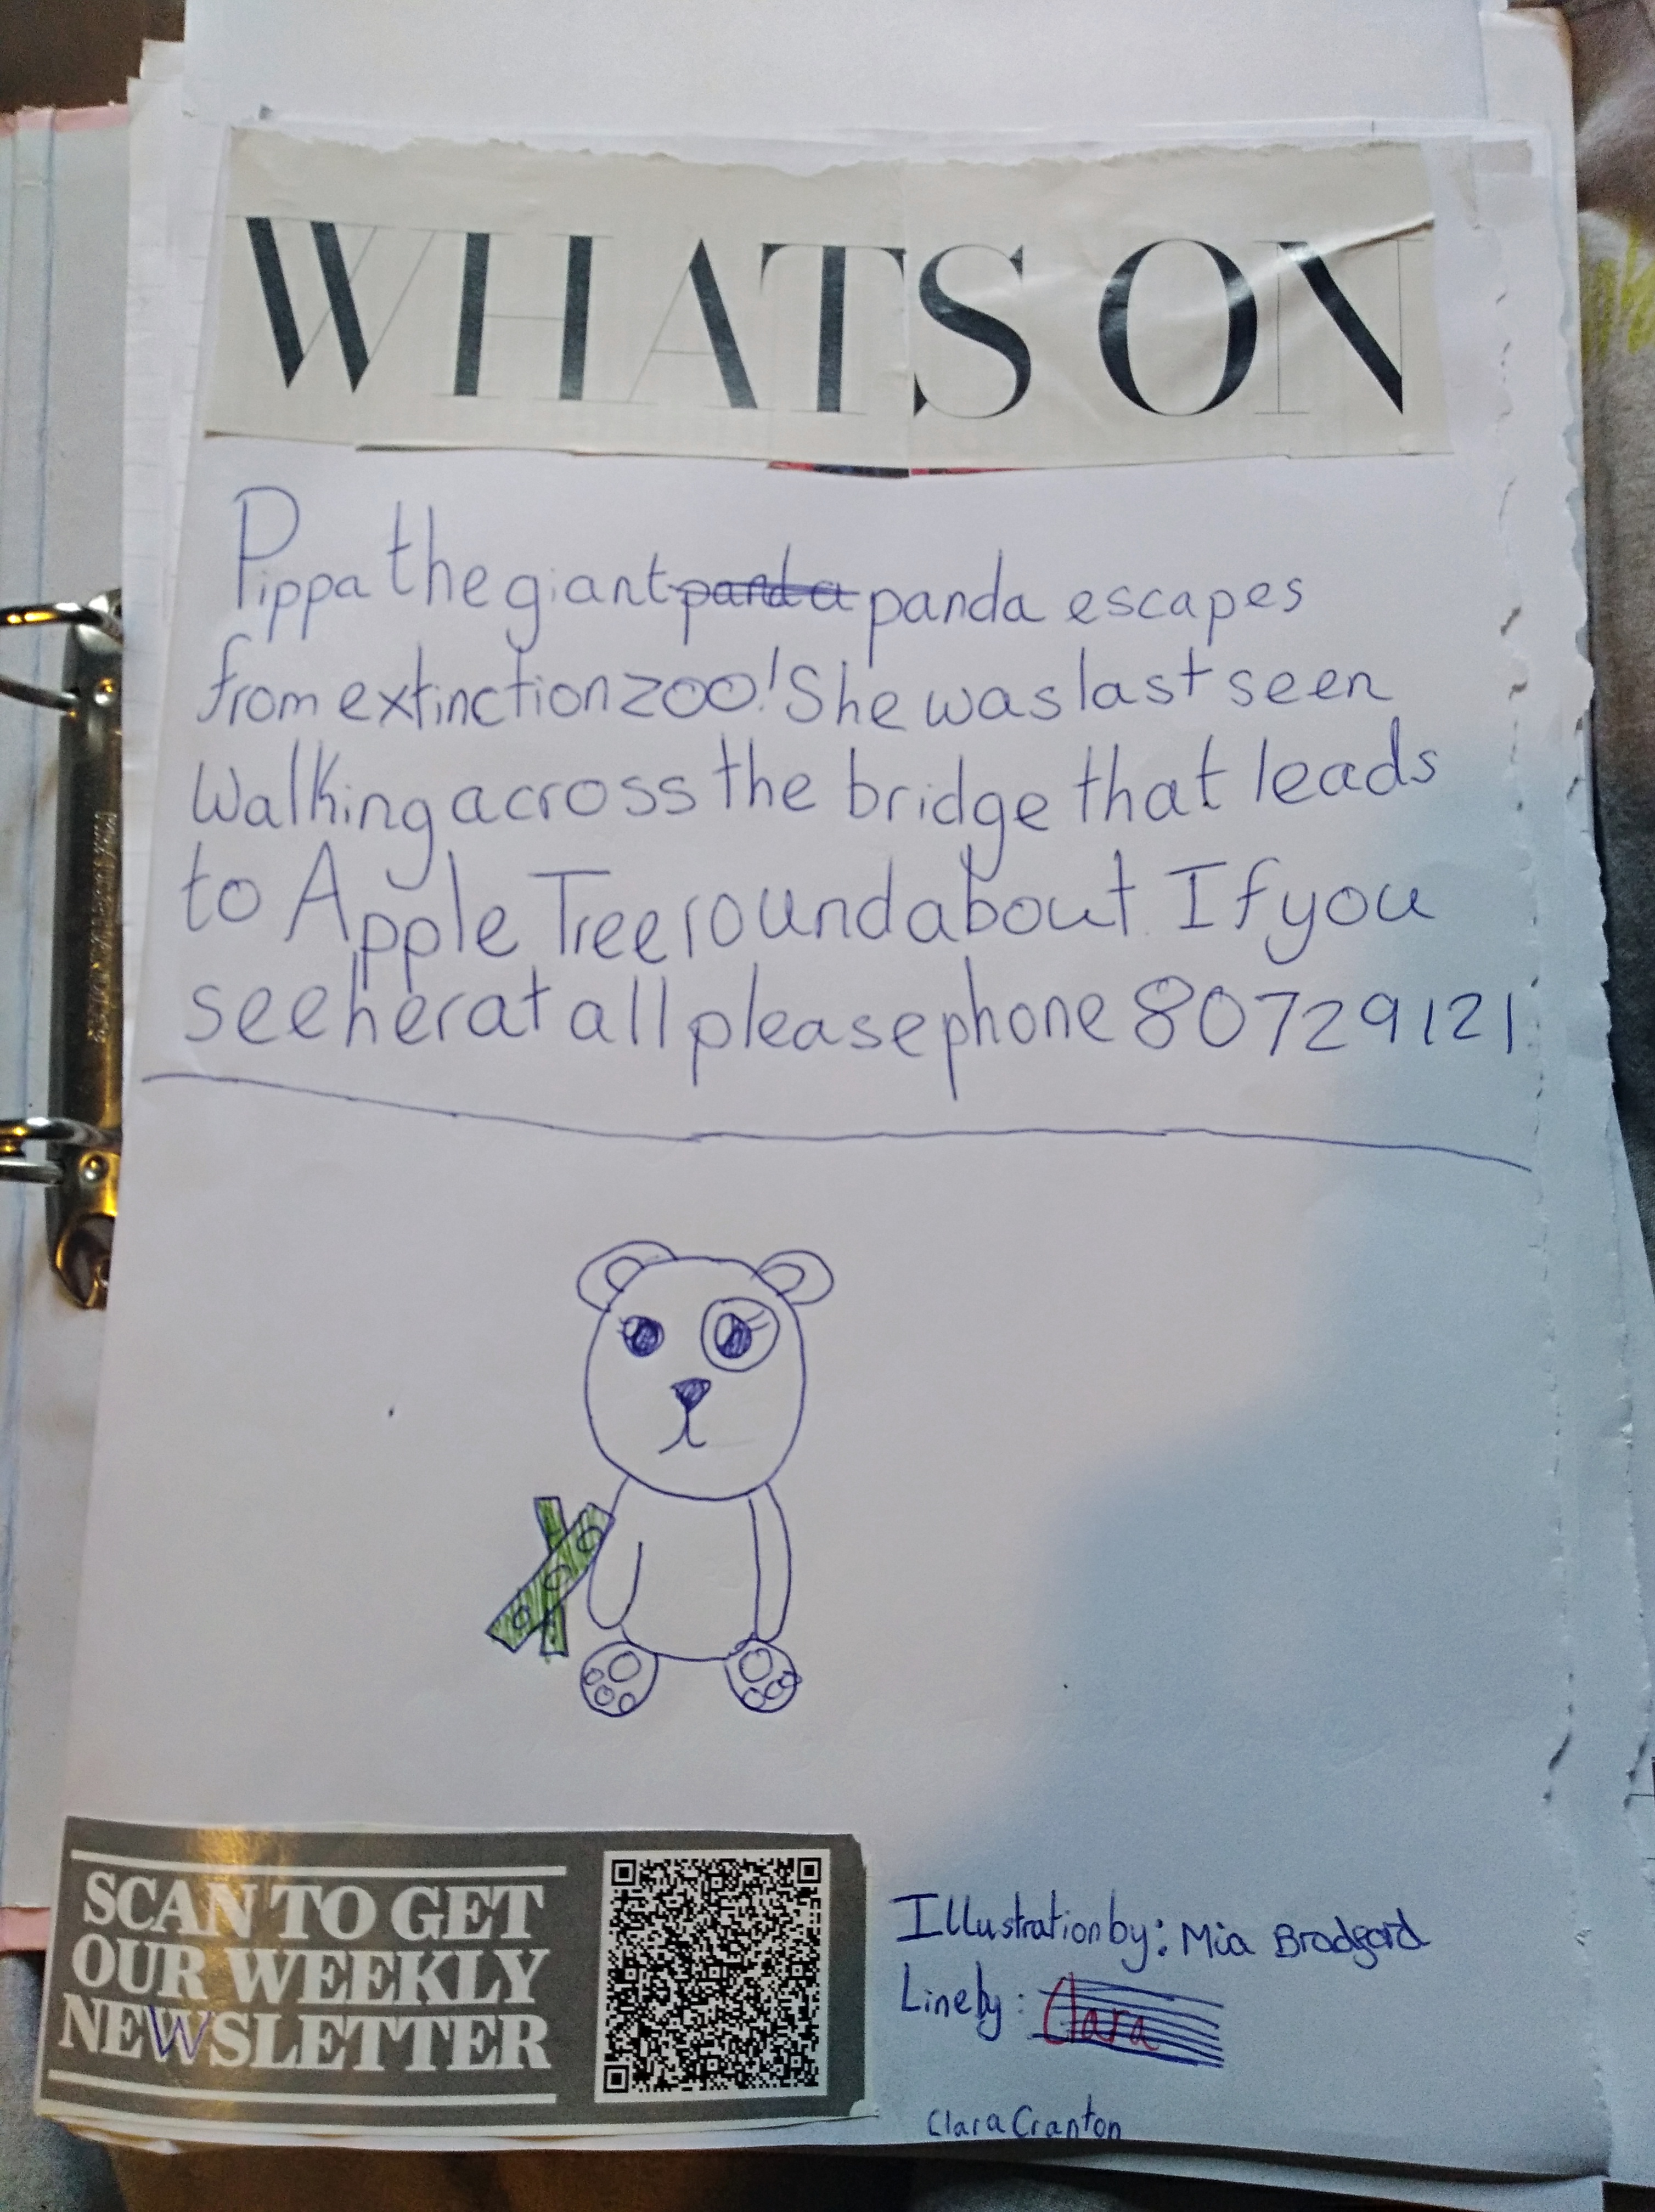 WHATS ON
Pippa the giant panda panda escapes
from extinction zoo! She was last seen
Walking across the bridge that leads
to Apple Tree roundabout. If you
see her at all please phone 80729121
SCAN TO GET
OUR WEEKLY
NEWSLETTER
Illustration by: Mia Bradgard
Line by: Clara
Clara Cranton